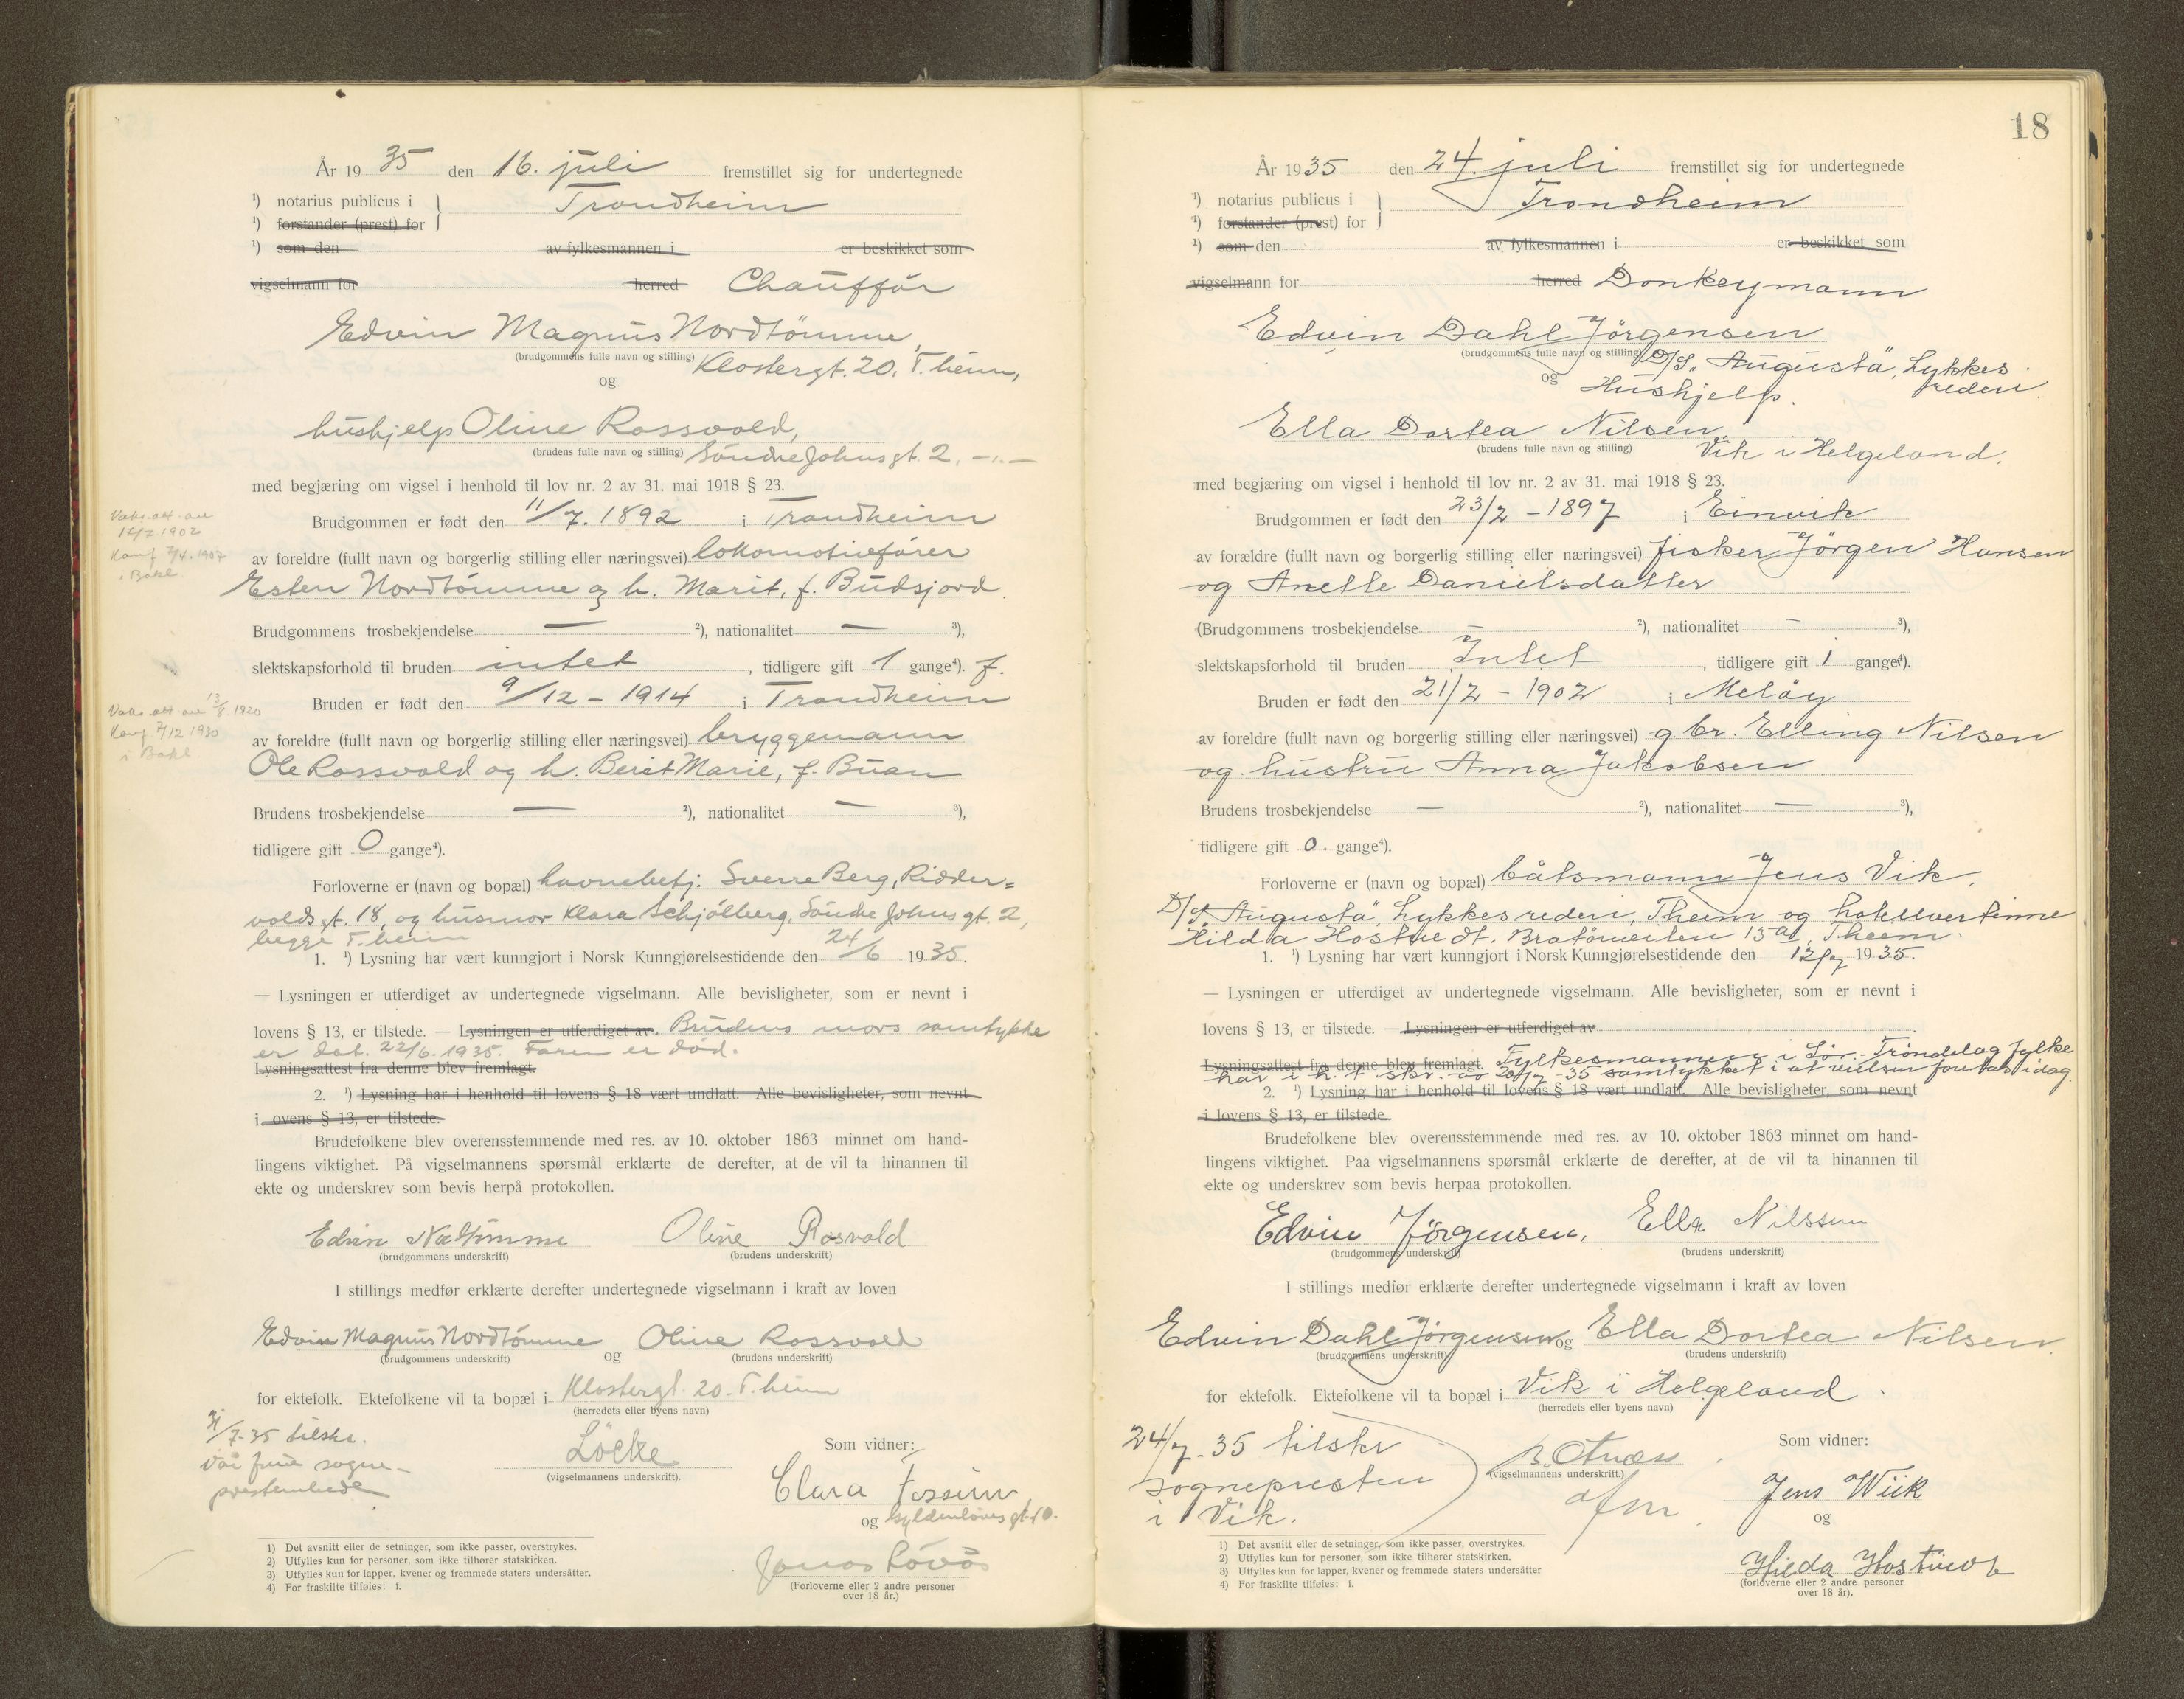 År 1935 den 16. juli fremstillet sig for undertegnede
¹) notarius publicus i
Trondheim
¹) forstander (prest) for
¹) som den av fylkesmannen i er beskikket som
vigselmann for herred Chauffør
Edvin Magnus Nordtömme,
(brudgommens fulle navn og stilling) Klostergt. 20. T.heim,
og
hushjelp Oline Rossvold,
(brudens fulle navn og stilling) Söndre Johnsgt. 2, -"-
med begjæring om vigsel i henhold til lov nr. 2 av 31. mai 1918 § 23.
Brudgommen er født den 11/7. 1892 i Trondheim
av foreldre (fullt navn og borgerlig stilling eller næringsvei) lokomotivfører
Esten Nordtömme og h. Marit, f. Budsjord.
Brudgommens trosbekjendelse — ²), nationalitet — ³),
slektskapsforhold til bruden intet, tidligere gift 1 gange⁴). f.
Bruden er født den 9/12 - 1914 i Trondheim
av foreldre (fullt navn og borgerlig stilling eller næringsvei) bryggemann
Ole Rossvold og h. Berit Marie, f. Buan
Brudens trosbekjendelse — ²), nationalitet — ³),
tidligere gift 0 gange⁴).
Forloverne er (navn og bopæl) havnebetj: Sverre Berg, Ridder=
voldsgt. 18, og husmor Klara Schjölberg, Söndre Johnsgt. 2,
begge T.heim
1. ¹) Lysning har vært kunngjort i Norsk Kunngjørelsestidende den 24/6 1935.
— Lysningen er utferdiget av undertegnede vigselmann. Alle bevisligheter, som er nevnt i
lovens § 13, er tilstede. — Lysningen er utferdiget av. Brudens mors samtykke
er dat. 22/6. 1935. Faren er död.
Lysningsattest fra denne blev fremlagt.
2. ¹) Lysning har i henhold til lovens § 18 vært undlatt. Alle bevisligheter, som nevnt
i lovens § 13, er tilstede.
Brudefolkene blev overensstemmende med res. av 10. oktober 1863 minnet om hand-
lingens viktighet. På vigselmannens spørsmål erklærte de derefter, at de vil ta hinannen til
ekte og underskrev som bevis herpå protokollen.
Edvin Nordtömme Oline Rosvold
(brudgommens underskrift) (brudens underskrift)
I stillings medfør erklærte derefter undertegnede vigselmann i kraft av loven
Edvin Magnus Nordtömme og Oline Rossvold
(brudgommens underskrift) (brudens underskrift)
for ektefolk. Ektefolkene vil ta bopæl i Klostergt. 20. T.heim
(herredets eller byens navn)
7-35 tilskr.
Vår frue sogne-
presteembede
Löcke
(vigselmannens underskrift).
Som vidner:
Clara
og Gyldenlövesgt. 10.
Jonas Lövås
(Forloverne eller 2 andre personer
over 18 år.)
1) Det avsnitt eller de setninger, som ikke passer, overstrykes.
2) Utfylles kun for personer, som ikke tilhører statskirken.
3) Utfylles kun for lapper, kvener og fremmede staters undersåtter.
4) For fraskilte tilføies: f.
1902
i Bakl
1920
7/12 1930
i Bakl
18
År 1935 den 24. juli fremstillet sig for undertegnede
¹) notarius publicus i
Trondheim
¹) forstander (prest) for
¹) som den av fylkesmannen i er beskikket som
vigselmann for herred Donkeymann
Edvin Dahl Jörgensen
(brudgommens fulle navn og stilling) D/S. "Augusta", Lykkes
rederi.
og Hushjelp.
Ella Dortea Nilsen,
(brudens fulle navn og stilling) Vik i Helgeland.
med begjæring om vigsel i henhold til lov nr. 2 av 31. mai 1918 § 23.
Brudgommen er født den 23/2 - 1897 i Einvik
av forældre (fullt navn og borgerlig stilling eller næringsvei) fisker Jörgen Hansen
og Anette Danielsdatter
(Brudgommens trosbekjendelse — ²), nationalitet — ³),
slektskapsforhold til bruden Intet, tidligere gift 1 gange⁴).
Bruden er født den 21/2 - 1902 i Melöy
av foreldre (fullt navn og borgerlig stilling eller næringsvei) g.br. Elling Nilsen
og hustru Anna Jakobsen
Brudens trosbekjendelse — ²), nationalitet — ³),
tidligere gift 0. gange⁴).
Forloverne er (navn og bopæl) båtsmann Jens Vik,
D/S. "Augusta", Lykkes rederi, Theim og hotellvertinne
Hilda Hostvedt. Bratörveiten 13 a, Theim.
1. ¹) Lysning har vært kunngjort i Norsk Kunngjørelsestidende den 12/7 1935.
— Lysningen er utferdiget av undertegnede vigselmann. Alle bevisligheter, som er nevnt i
lovens § 13, er tilstede. — Lysningen er utferdiget av
Lysningsattest fra denne blev fremlagt. Fylkesmannen i Sör-Tröndelag fylke
har i h.t. skr. av 20/7 -35 samtykket i at vielsen foretas idag.
2. ¹) Lysning har i henhold til lovens § 18 vært undlatt. Alle bevisligheter, som nevnt
i lovens § 13, er tilstede.
Brudefolkene blev overensstemmende med res. av 10. oktober 1863 minnet om hand-
lingens viktighet. Paa vigselmannens spørsmål erklærte de derefter, at de vil ta hinannen til
ekte og underskrev som bevis herpaa protokollen.
Edvin Jörgensen. Ella Nilssen
(brudgommens underskrift) (brudens underskrift)
I stillings medfør erklærte derefter undertegnede vigselmann i kraft av loven
Edvin Dahl Jörgensen og Ella Dortea Nilsen.
(brudgommens underskrift) (brudens underskrift)
for ektefolk. Ektefolkene vil ta bopæl i Vik i Helgeland.
(herredets eller byens navn)
24/7-35 tilskr
sognepresten
i Vik.
(vigselmannens underskrift.)
Som vidner:
Jens Wiik
og
Hilda Hostvedt
(forloverne eller 2 andre personer
over 18 år).
1) Det avsnitt eller de setninger, som ikke passer, overstrykes.
2) Utfylles kun for personer, som ikke tilhører statskirken.
3) Utfylles kun for lapper, kvener og fremmede staters undersåtter
4) For fraskilte tilføies: f.